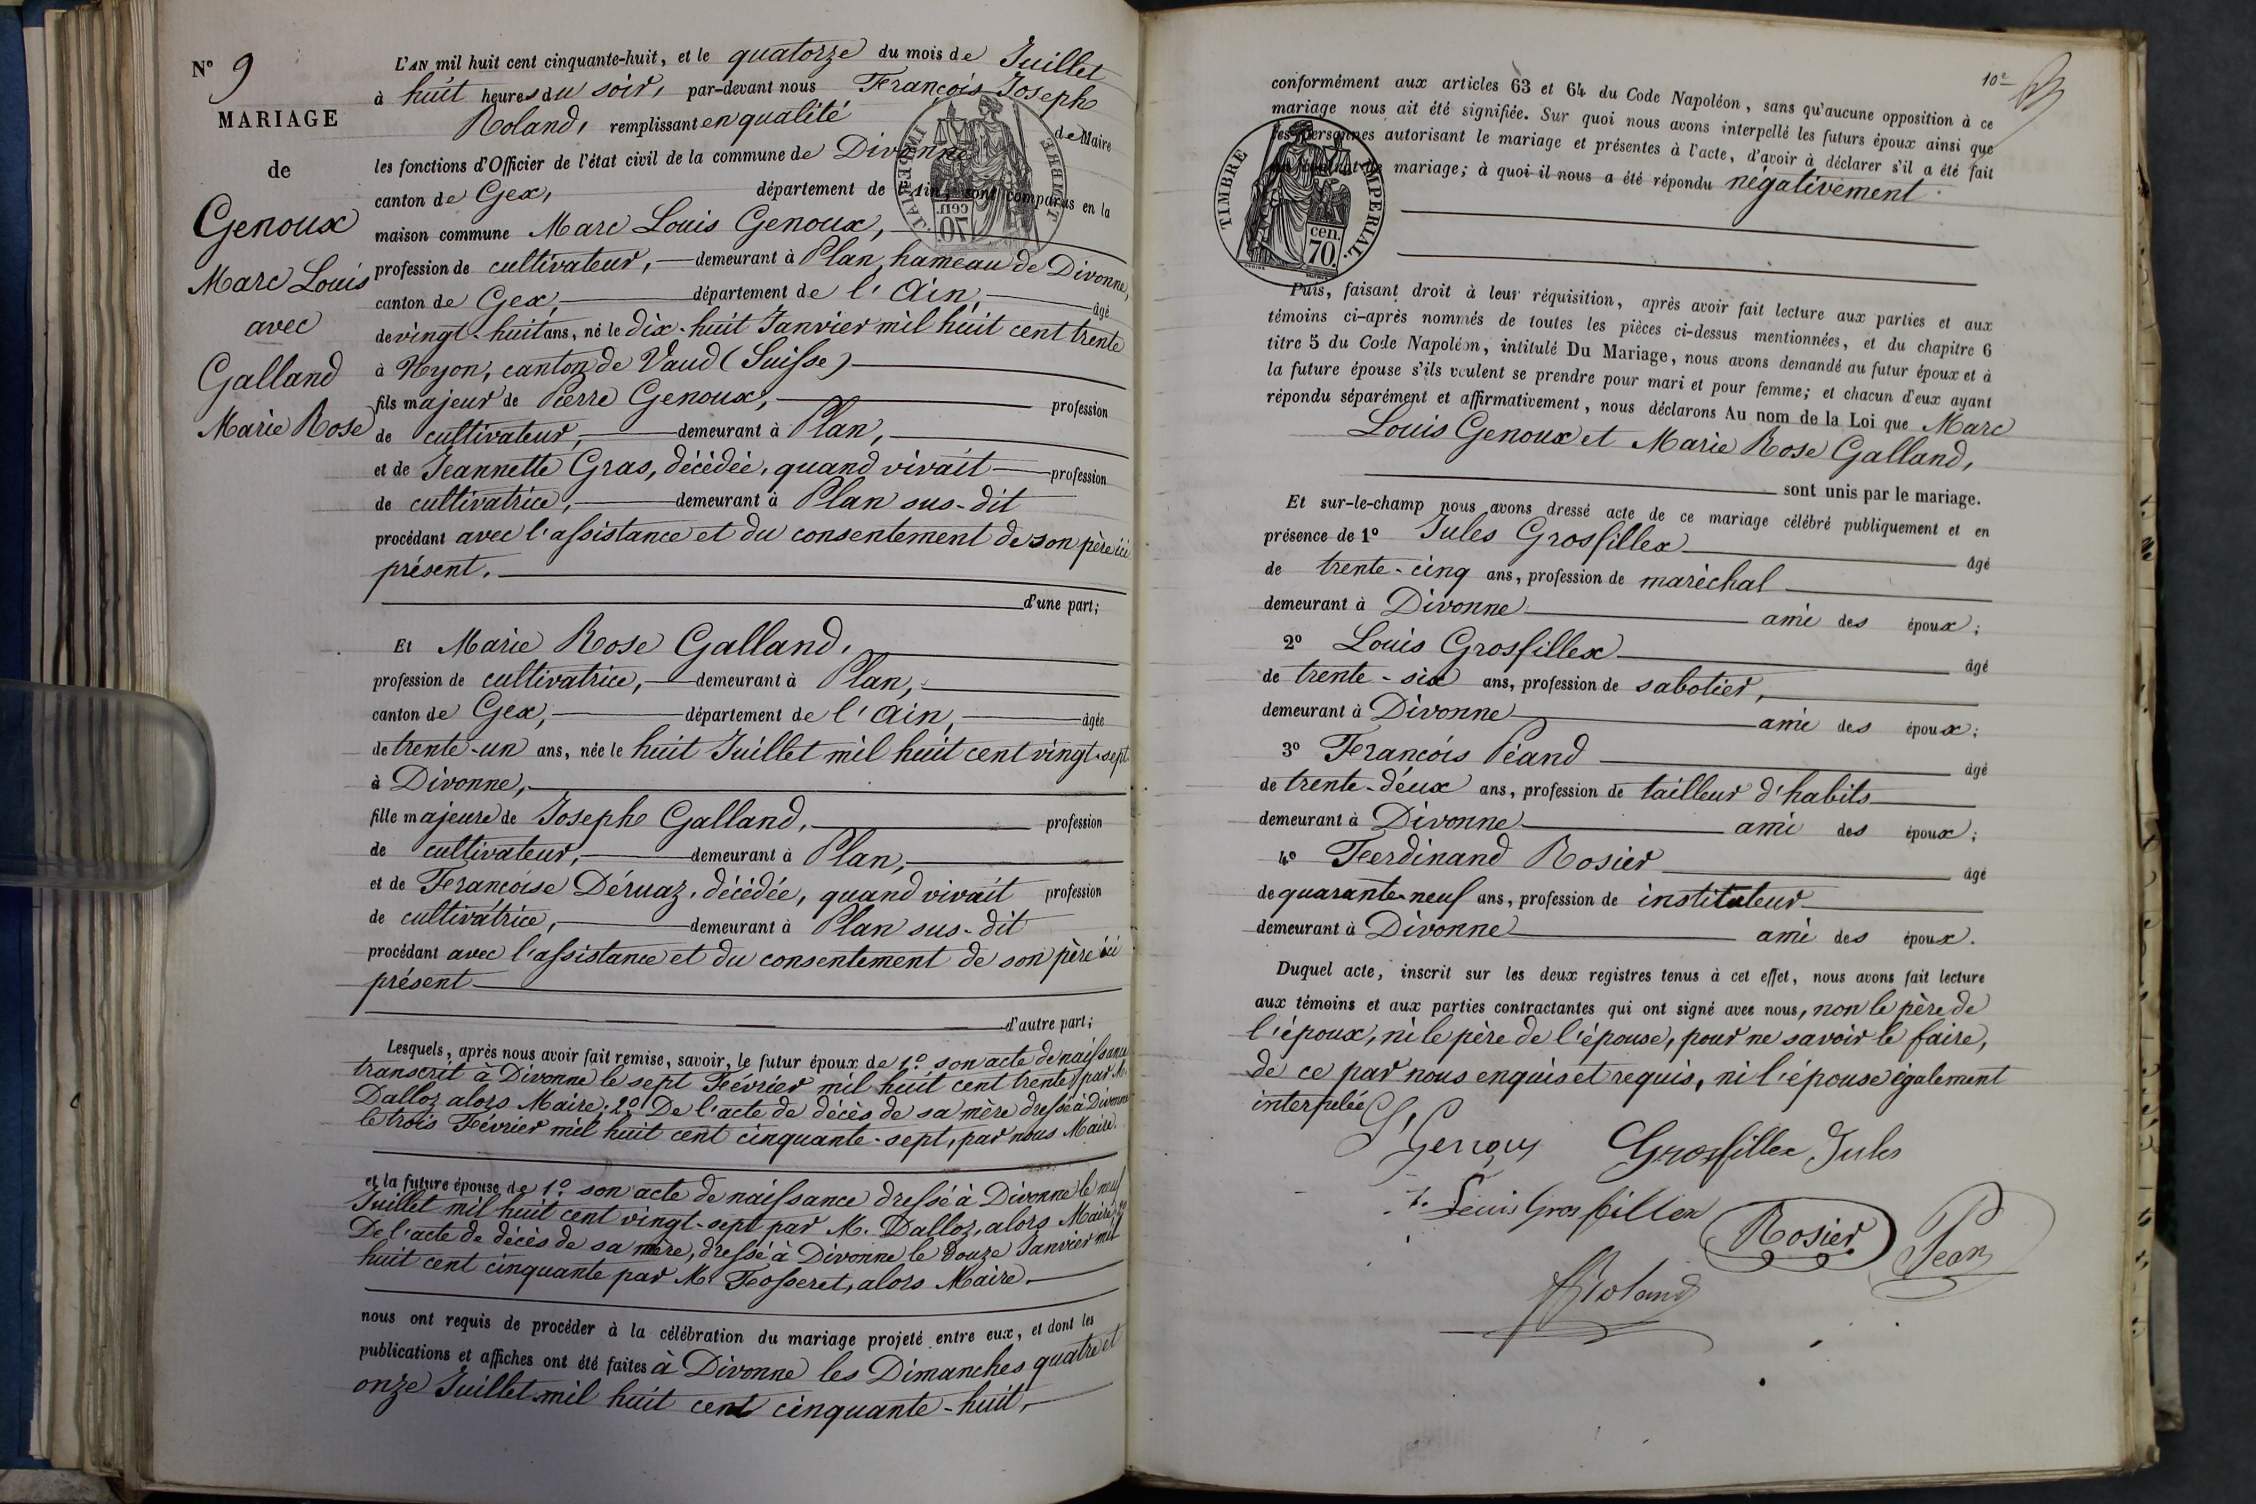 N° 9
MARIAGE
de
Genoux
Marc Louis
avec
Galland
Marie Rose
L'AN mil huit cent cinquante-huit, et le quatorze du mois de Juillet
à huit heures du soir, par-devant nous François Joseph
Roland, remplissant en qualité de Maire
les fonctions d'Officier de l'état civil de la commune de Divonne
canton de Gex, département de l'Ain, sont comparus en la
maison commune Marc Louis Genoux,
profession de cultivateur, demeurant à Plan, hameau de Divonne,
canton de Gex, département de l'Ain, âgé
de vingt-huit ans, né le dix-huit Janvier mil huit cent trente
à Nyon, canton de Vaud (Suisse)
fils majeur de Pierre Genoux, profession
de cultivateur, demeurant à Plan,
et de Jeannette Gras, décédée, quand vivait profession
de cultivatrice, demeurant à Plan sus-dit
procédant avec l'assistance et du consentement de son père ici
présent.
d'une part;
Et Marie Rose Galland,
profession de cultivatrice, demeurant à Plan,
canton de Gex, département de l'Ain, âgée
de trente-un ans, née le huit Juillet mil huit cent vingt-sept
à Divonne,
fille majeure de Joseph Galland, profession
de cultivateur, demeurant à Plan,
et de Françoise Déruaz, décédée, quand vivait profession
de cultivatrice, demeurant à Plan sus-dit
procédant avec l'assistance et du consentement de son père ici
présent
d'autre part;
Lesquels, après nous avoir fait remise, savoir, le futur époux de 1° son acte de naissance
transcrit à Divonne le sept Février mil huit cent trente par M.
Dalloz alors Maire; 2° De l'acte de décès de sa mère dressé à Divonne
le trois Février mil huit cent cinquante-sept, par nous Maire.
et la future épouse de 1° son acte de naissance dressé à Divonne le neuf
Juillet mil huit cent vingt-sept par M. Dalloz, alors Maire; 2°
De l'acte de décès de sa mère, dressé à Divonne le douze Janvier mil
huit cent cinquante par M. Fosseret, alors Maire
nous ont requis de procéder à la célébration du mariage projeté entre eux, et dont les
publications et affiches ont été faites à Divonne les Dimanches quatre et
onze Juillet mil huit cent cinquante-huit,
10e
conformément aux articles 63 et 64 du Code Napoléon, sans qu'aucune opposition à ce
mariage nous ait été signifiée. Sur quoi nous avons interpellé les futurs époux ainsi que
les personnes autorisant le mariage et présentes à l'acte, d'avoir à déclarer s'il a été fait
un contrat de mariage; à quoi il nous a été répondu négativement.
TIMBRE IMPERIAL
cen.
70.
Puis, faisant droit à leur réquisition, après avoir fait lecture aux parties et aux
témoins ci-après nommés de toutes les pièces ci-dessus mentionnées, et du chapitre 6
titre 5 du Code Napoléon, intitulé Du Mariage, nous avons demandé au futur époux et à
la future épouse s'ils veulent se prendre pour mari et pour femme; et chacun d'eux ayant
répondu séparément et affirmativement, nous déclarons Au nom de la Loi que Marc
Louis Genoux et Marie Rose Galland,
sont unis par le mariage.
Et sur-le-champ nous avons dressé acte de ce mariage célébré publiquement et en
présence de 1° Jules Grosfillex âgé
de trente-cinq ans, profession de maréchal
demeurant à Divonne ami des époux;
2° Louis Grosfillex âgé
de trente-six ans, profession de sabotier,
demeurant à Divonne ami des époux;
3° François Péand âgé
de trente-deux ans, profession de tailleur d'habits
demeurant à Divonne ami des époux;
4° Ferdinand Rosier âgé
de quarante-neuf ans, profession de instituteur
demeurant à Divonne ami des époux.
Duquel acte, inscrit sur les deux registres tenus à cet effet, nous avons fait lecture
aux témoins et aux parties contractantes qui ont signé avec nous, non le père de
l'époux, ni le père de l'épouse, pour ne savoir le faire,
de ce par nous enquis et requis, ni l'épouse également
interpelée
Grosfillex Jules
Louis Grosfillex
Rosier
Pean
Roland